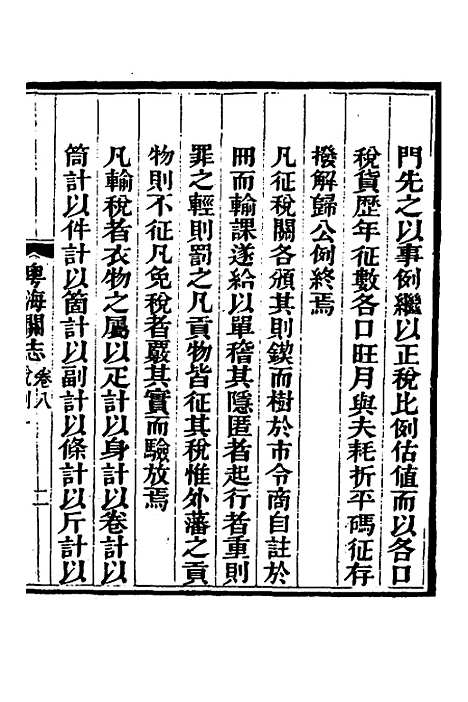 門先之以事例繼以正稅比例估值而以各口
稅貨歷年征數各口旺月與夫耗折平碼征存
撥解歸公例終焉
凡征稅關各頒其則鍥而樹於市令商自註於
冊而輸課遂給以單稽其隱匿者起行者重則
罪之輕則罰之凡貢物皆征其稅惟外藩之貢
物則不征凡免稅者覈其實而驗放焉
凡輸稅者衣物之屬以疋計以身計以卷計以
筒計以件計以箇計以副計以條計以斤計以
粵海關志 卷八